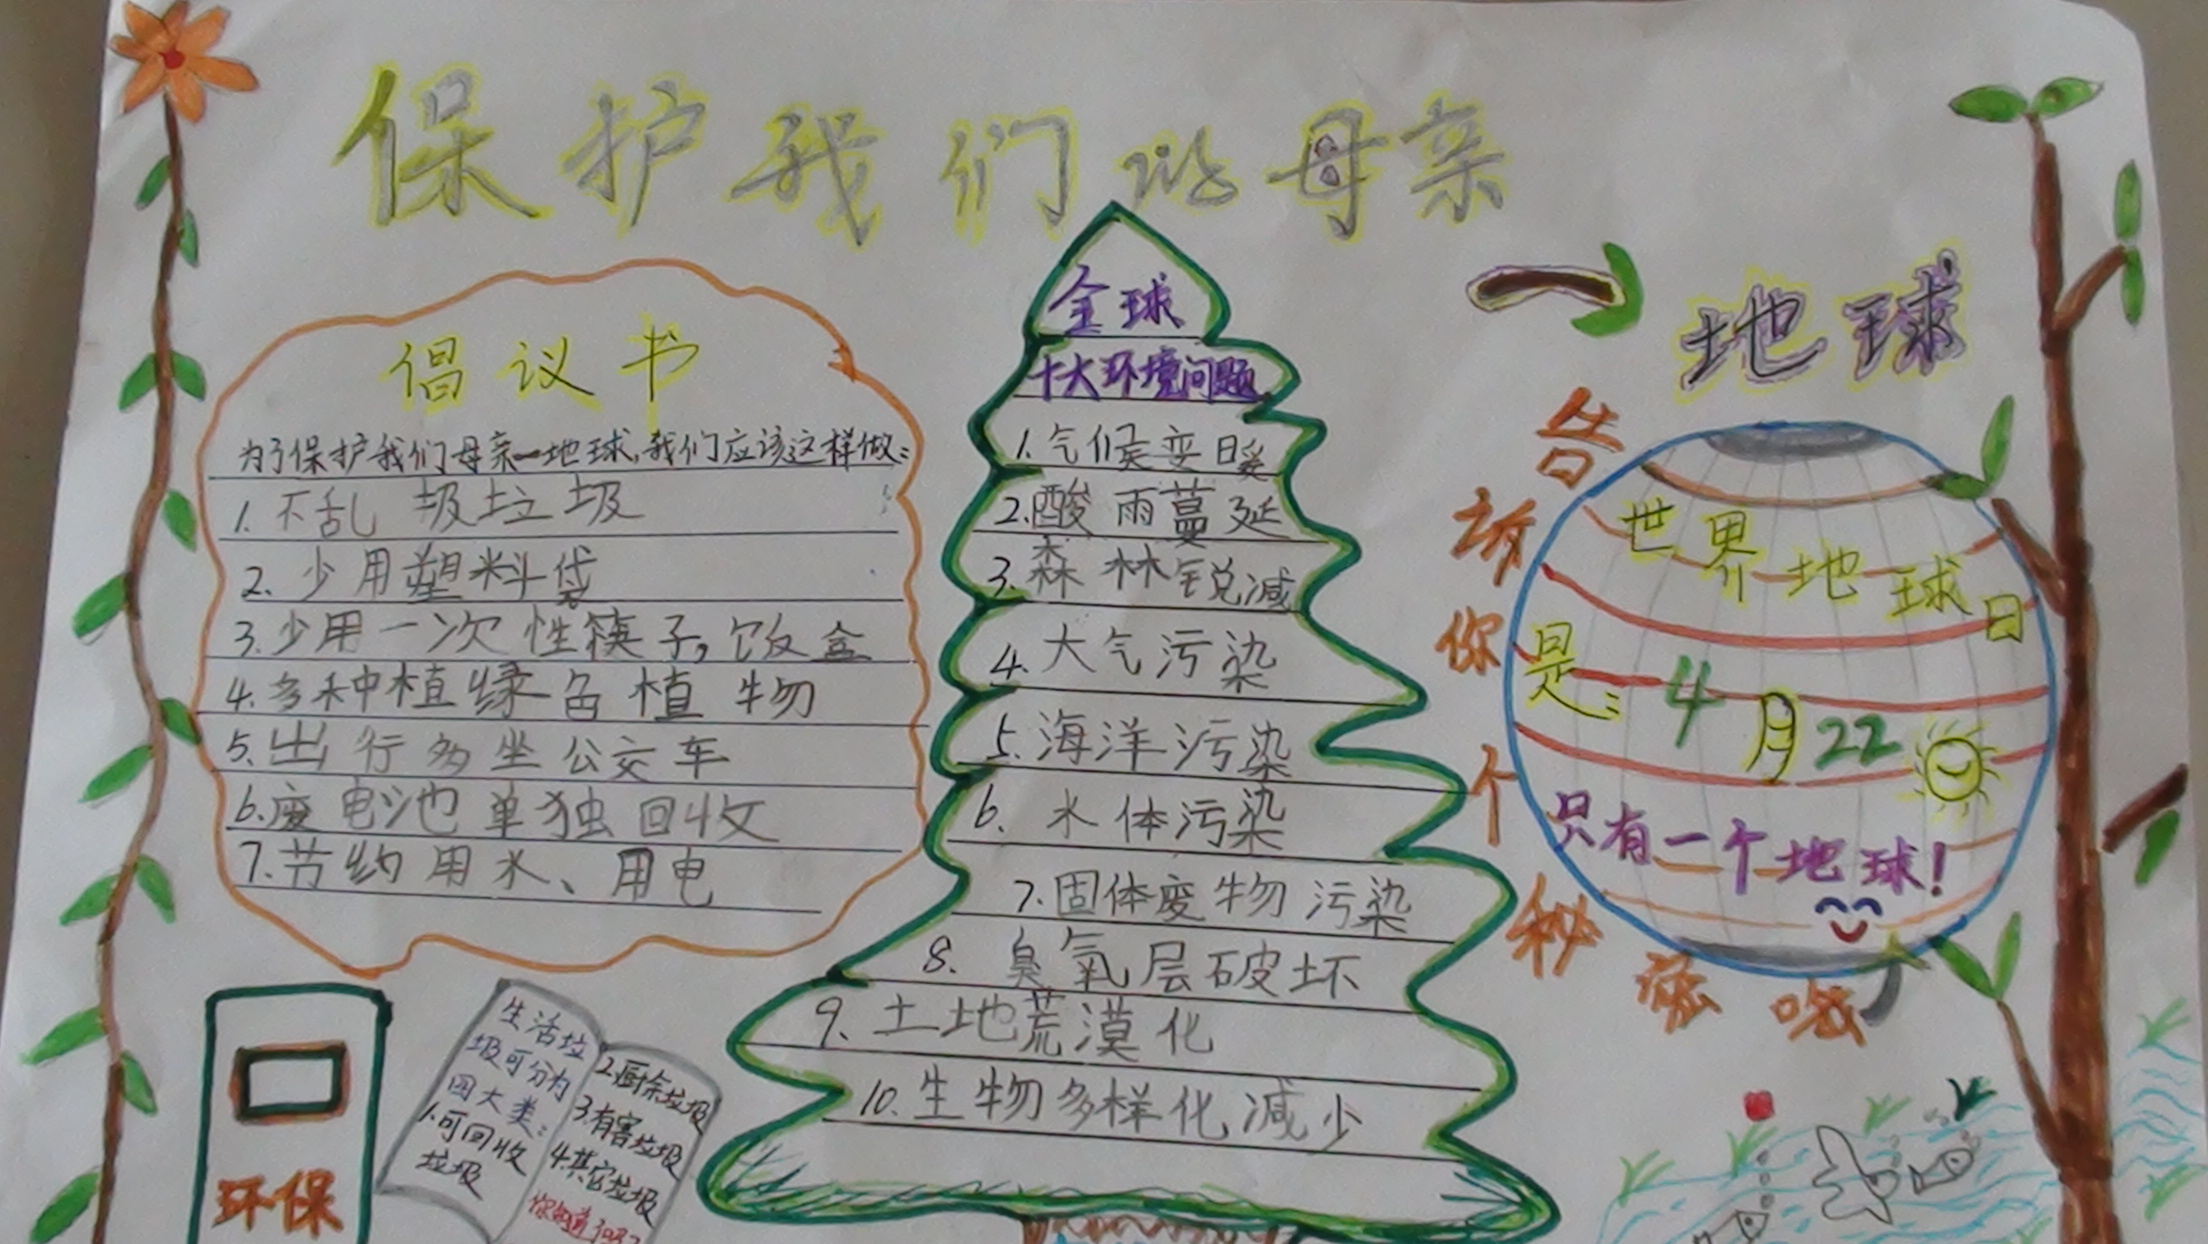 保护我们的母亲
地球
倡议书
为了保护我们母亲—地球,我们应该这样做:
1.不乱圾垃圾
2.少用塑料袋
3.少用一次性筷子,饭盒
4.多种植绿色植物
5.出行多坐公交车
6.废电池单独回收
7.节约用水、用电
全球
十大环境问题
1.气候变暖
2.酸雨蔓延
3.森林锐减
4.大气污染
5.海洋污染
6.水体污染
7.固体废物污染
8.臭氧层破坏
9.土地荒漠化
10.生物多样化减少
告诉你个秘密哦
世界地球日
是:4月22
只有一个地球!
环保
生活垃
圾可分为
四大类:
1.可回收
垃圾
2.厨余垃圾
3.有害垃圾
4.其它垃圾
你知道了吗?